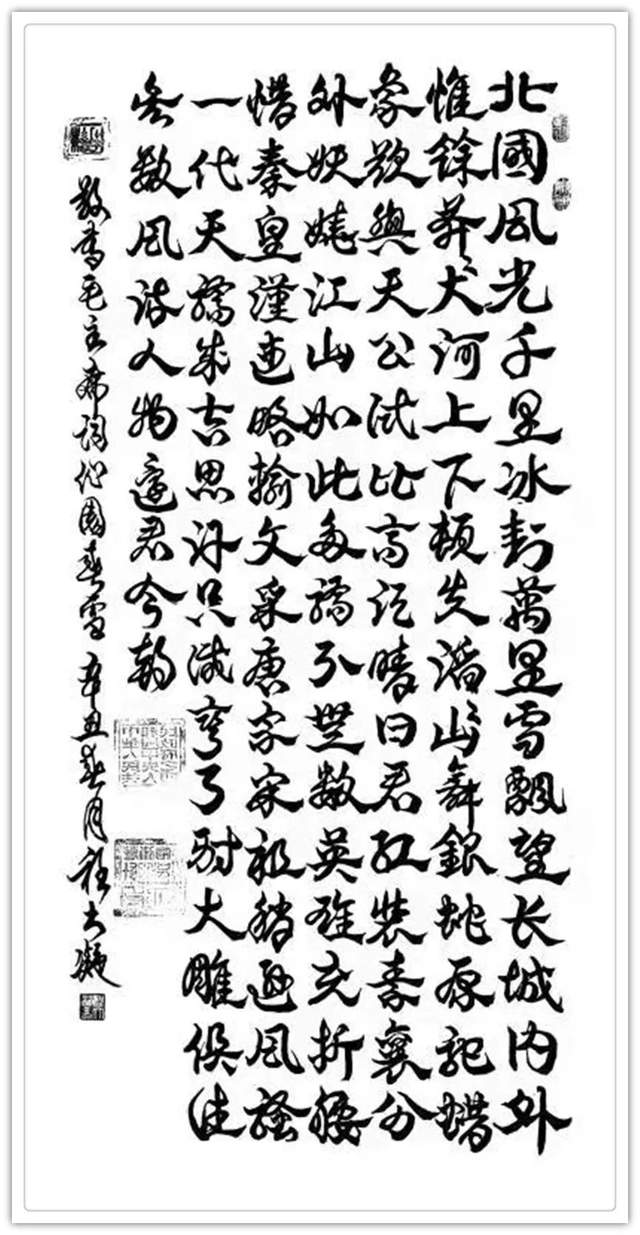 北國風光千里冰封萬里雪飄望长城内外
惟餘莽々大河上下頓失滔々山舞銀蛇原馳蜡
象欲與天公试比高須晴日看红裝素裹分
外妖娆江山如此多嬌引無數英雄竞折腰
惜秦皇漢武略輸文采唐宗宋祖稍逊風騷
一代天驕成吉思汗只識弯弓射大雕俱往
矣數風流人物還看今朝
敬書毛主席詞沁園春雪 辛丑春月程大凝